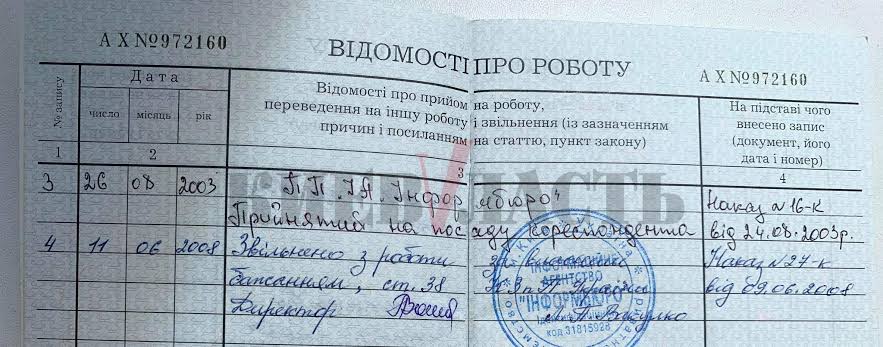 АХ №972160
ВІДОМОСТІ ПРО РОБОТУ
АХ №972160
№ запису
Дата
число місяць рік
Відомості про прийом на роботу,
переведення на іншу роботу і звільнення (із зазначенням
причин і посиланням на статтю, пункт закону)
На підставі чого
внесено запис
(документ, його
дата і номер)
1 2 3 4
3 26 08 2003 П.П. ІА. Інформбюро" Наказ №16-к
Прийнятий на посаду кореспондента від 24.08.2003р.
4 11 06 2008 Звільнено з роботи за власним Наказ №27-к
бажанням, ст. 38 КЗпП України від 09.06.2008
Директор Л.П. Вакулко
КИЕВVЛАСТЬ
ІНФОРМАЦІЙНЕ
АГЕНТСТВО
"ІНФОРМБЮРО"
код 31815928